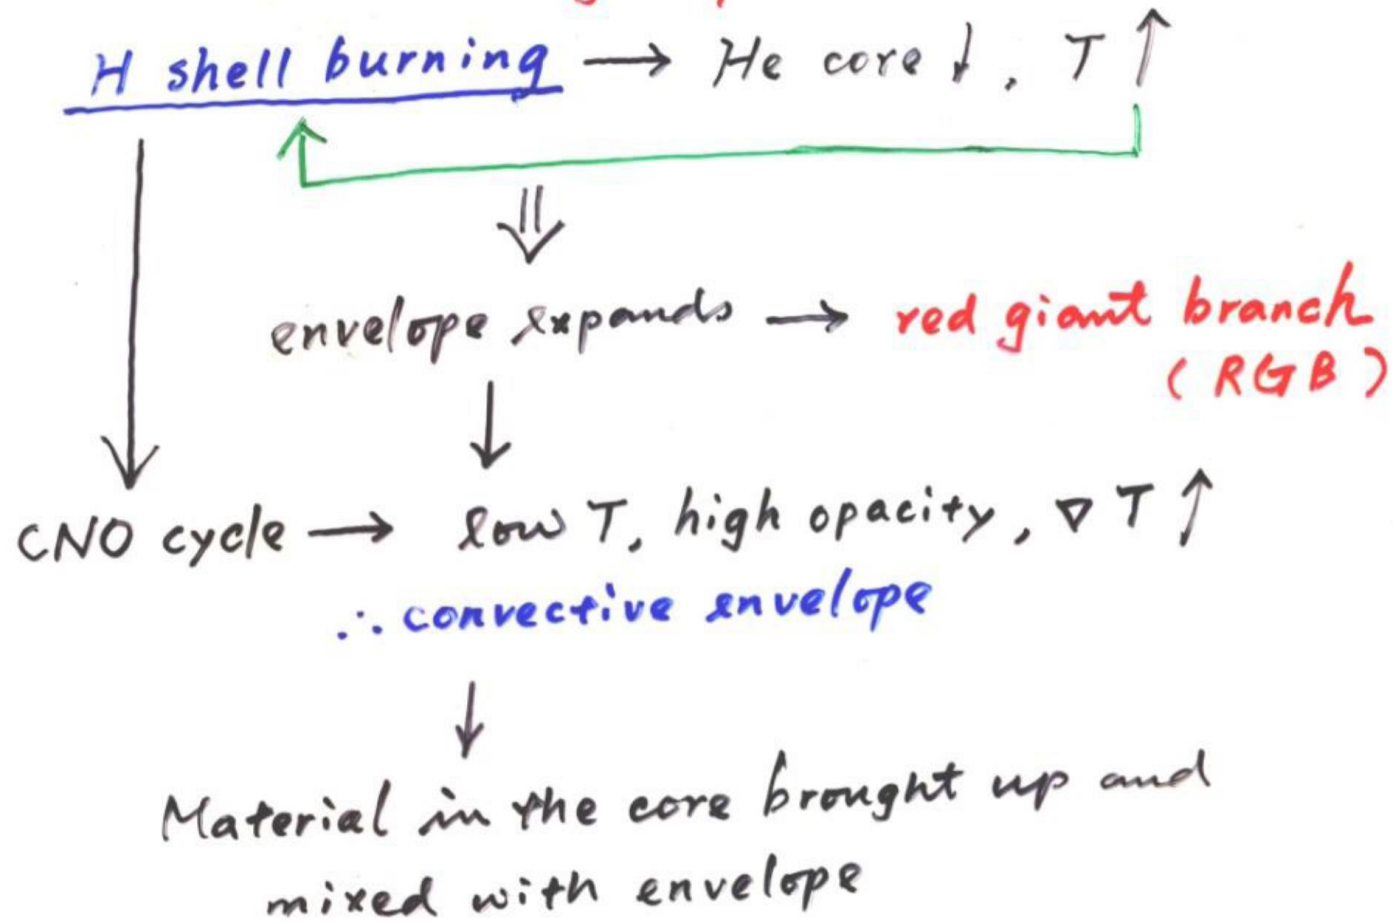 H shell burning → He core ↓, T ↑
envelope expands → red giant branch
(RGB)
CNO cycle → low T, high opacity, ∇T ↑
∴ convective envelope
Material in the core brought up and
mixed with envelope